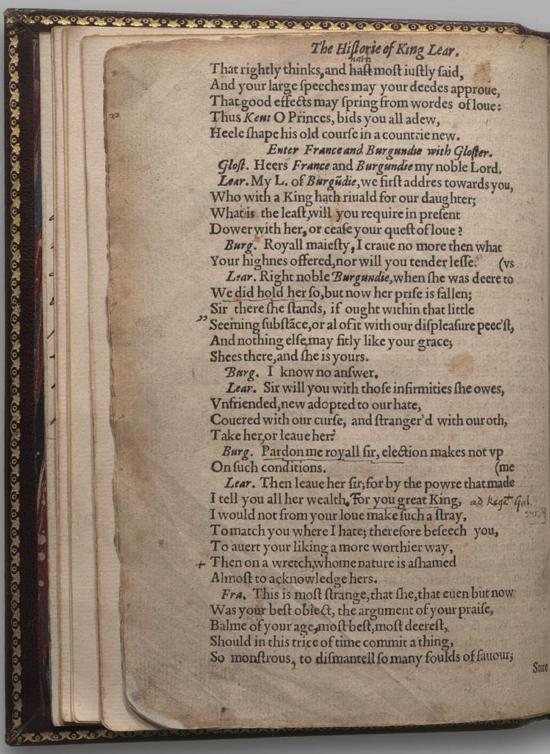 The Historie of King Lear.
hath
That rightly thinks, and hast most iustly said,
And your large speeches may your deedes approue,
That good effects may spring from wordes of loue:
Thus Kent O Princes, bids you all adew,
Heele shape his old course in a countrie new.
Enter France and Burgundie with Gloster.
Glost. Heers France and Burgundie my noble Lord.
Lear. My L. of Burgũdie, we first addres towards you,
Who with a King hath riuald for our daughter;
What is the least, will you require in present
Dower with her, or cease your quest of loue?
Burg. Royall maiesty, I craue no more then what
Your highnes offered, nor will you tender lesse. (vs
Lear. Right noble Burgundie, when she was deere to
We did hold her so, but now her prise is fallen;
Sir there she stands, if ought within that little
Seeming substãce, or al of it with our displeasure peec'st,
And nothing else, may fitly like your grace;
Shees there, and she is yours.
Burg. I know no answer.
Lear. Sir will you with those infirmities she owes,
Vnfriended, new adopted to our hate,
Couered with our curse, and stranger'd with our oth,
Take her, or leaue her?
Burg. Pardon me royall sir, election makes not vp
On such conditions. (me
Lear. Then leaue her sir, for by the powre that made
I tell you all her wealth, For you great King, ad Regẽ Gal
I would not from your loue make such a stray,
To match you where I hate; therefore beseech you,
To auert your liking a more worthier way,
+ Then on a wretch, whome nature is ashamed
Almost to acknowledge hers.
Fra. This is most strange, that she, that euen but now
Was your best obiect, the argument of your praise,
Balme of your age, most best, most deerest,
Should in this trice of time commit a thing,
So monstrous, to dismantell so many foulds of fauour;
Sure